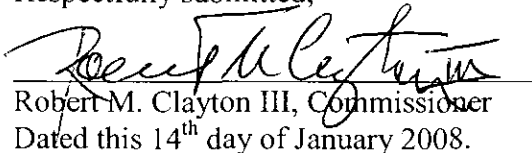 Respectfully submitted,
Robert M. Clayton III, Commissioner
Dated this 14th day of January 2008.